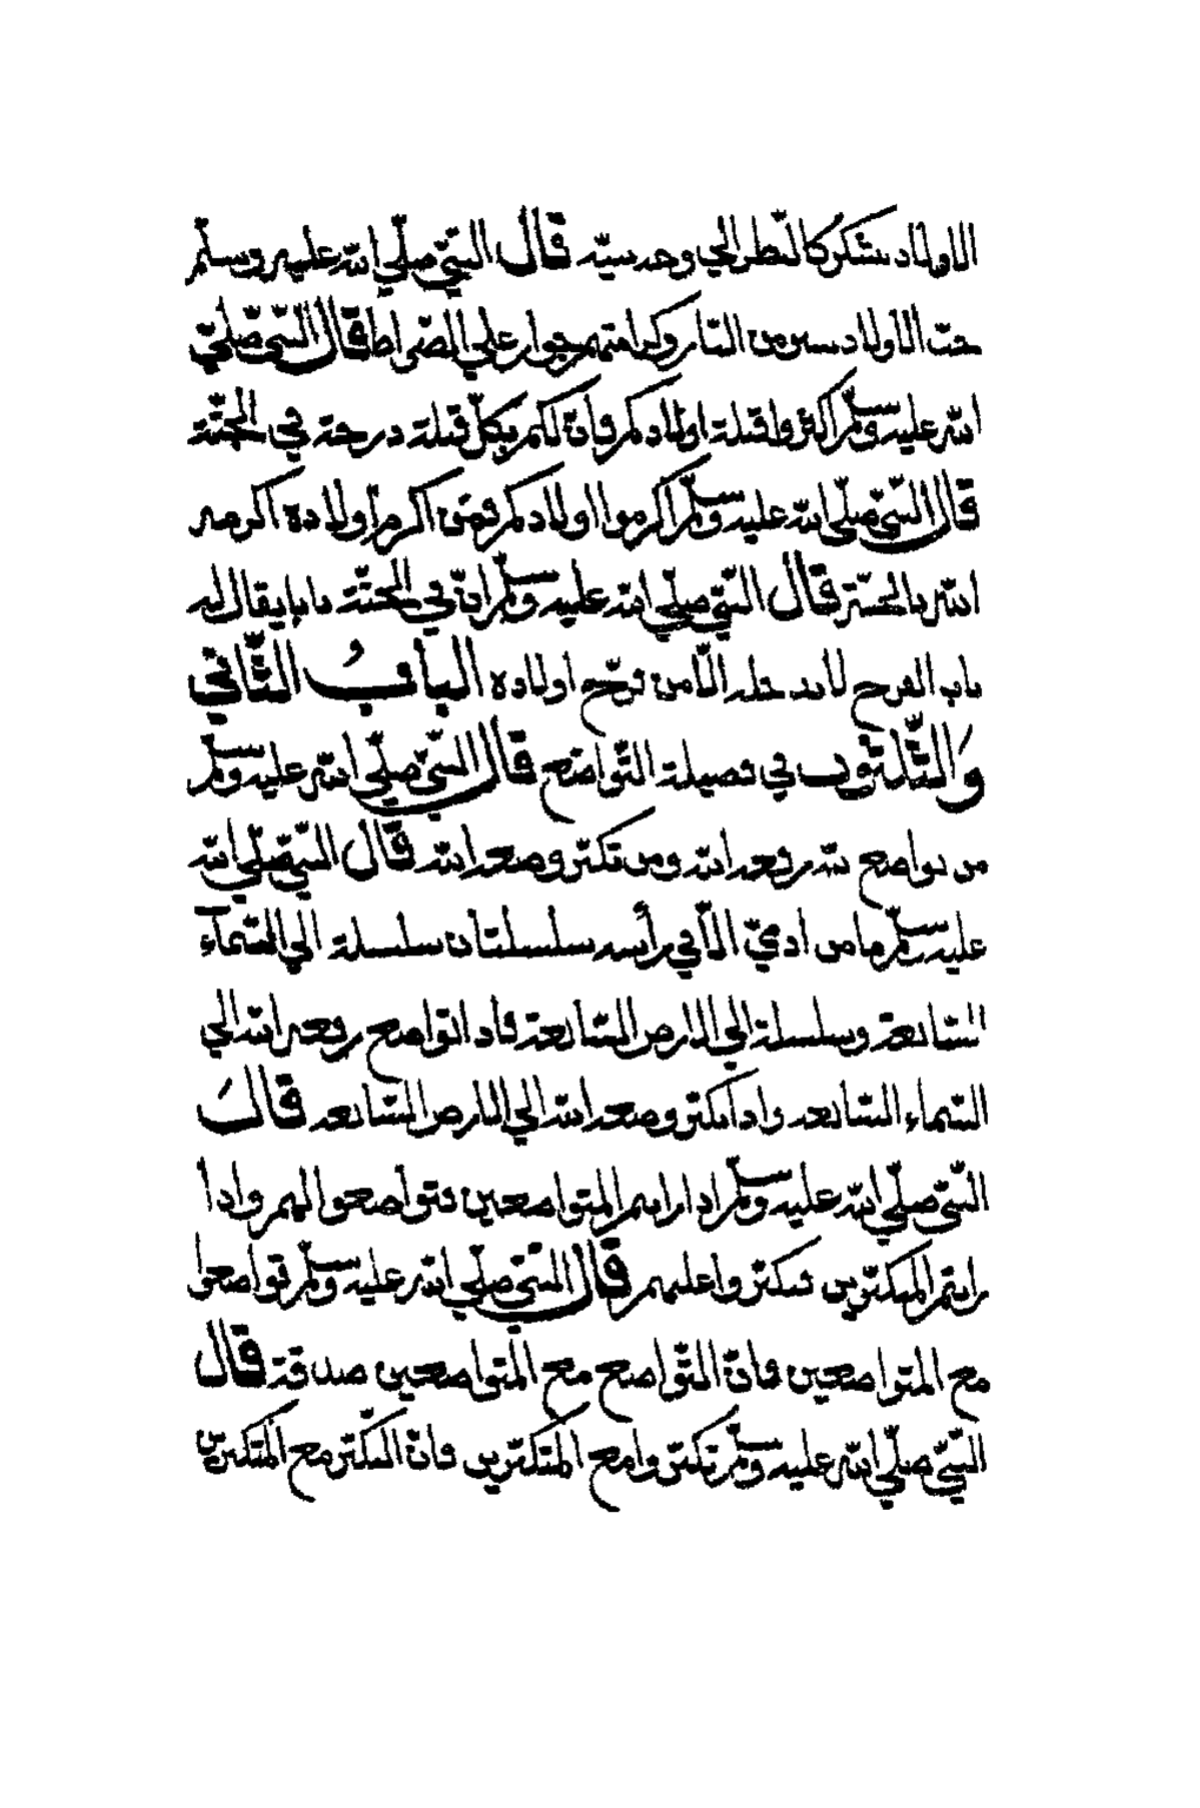 الاولاد بشكر كالنظر الي وجه نبيه قال النبي صلي الله عليه وسلم
حب الاولاد ستر من النار وكرامتهم جواز علي الصراط قال النبي صلي
الله عليه وسلم اكثروا قبلة اولادكم فان لكم بكل قبلة درجة في الجنة
قال النبي صلي الله عليه وسلم اكرموا اولادكم فمن اكرم اولاده اكرمه
الله بالجنة قال النبي صلي الله عليه وسلم ان في الجنة بابا يقال له
باب الفرح لا يدخله الا من فرح اولاده الباب الثاني
والثلثون في فضيلة التواضع قال النبي صلي الله عليه وسلم
من تواضع لله رفعه الله ومن تكبر وضعه الله قال النبي صلي الله
عليه وسلم ما من ادمي الا في رأسه سلسلتان سلسلة الي السمآء
السابعة وسلسلة الي الارض السابعة فاذا تواضع رفعه الله الي
السماء السابعه واذا تكبر وضعه الله الي الارض السابعه قال
النبي صلي الله عليه وسلم اذا رايتم المتواضعين فتواضعوا لهم واذا
رايتم المتكبرين فتكبروا عليهم قال النبي صلي الله عليه وسلم تواضعوا
مع المتواضعين فان التواضع مع المتواضعين صدقة قال
النبي صلي الله عليه وسلم تكبروا مع المتكبرين فان التكبر مع المتكبرين